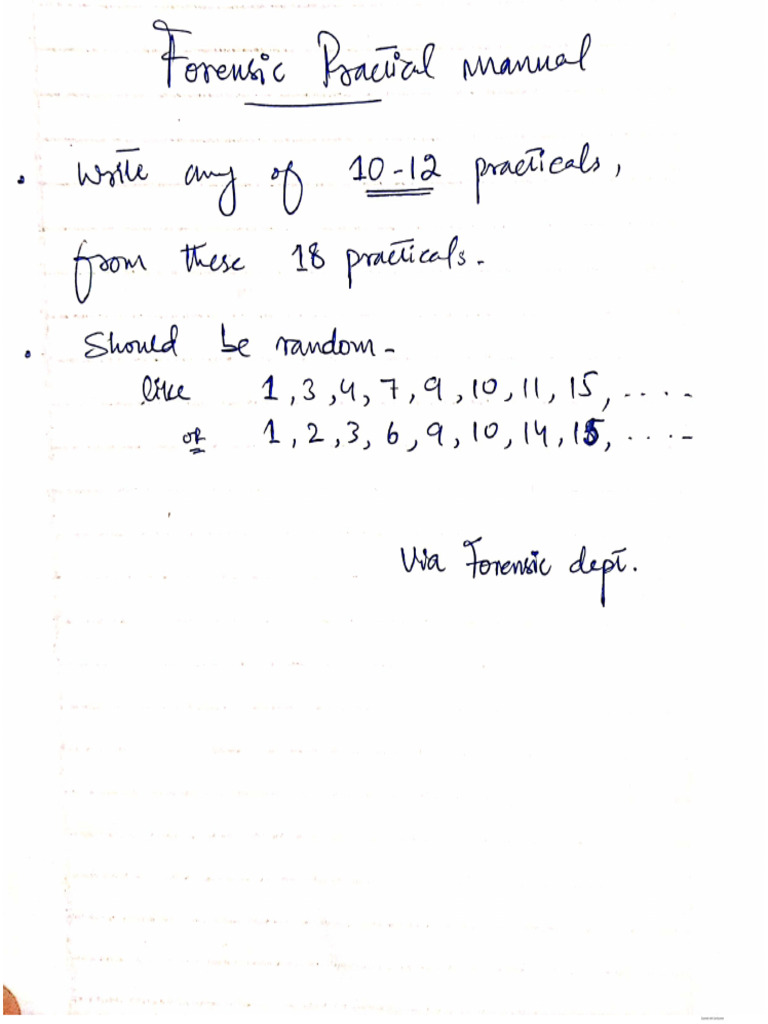 Forensic Practical Manual
• Write any of 10-12 practicals,
from these 18 practicals.
• Should be random-
like 1, 3, 4, 7, 9, 10, 11, 15, ....
or 1, 2, 3, 6, 9, 10, 14, 15, ....
Via Forensic dept.